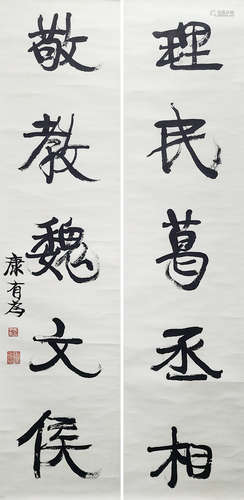 理民葛丞相
敬教魏文侯
康有為